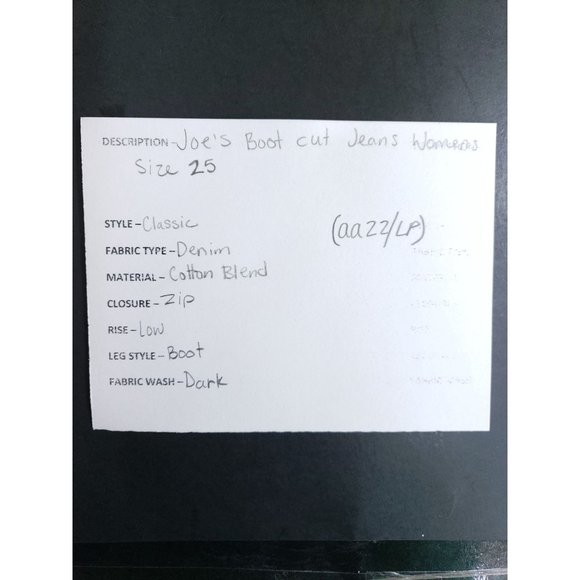 DESCRIPTION - Joe's Boot cut Jeans Womens
Size 25
STYLE - Classic
(aa22/LP)
FABRIC TYPE - Denim
MATERIAL - Cotton Blend
CLOSURE - Zip
RISE - Low
LEG STYLE - Boot
FABRIC WASH - Dark